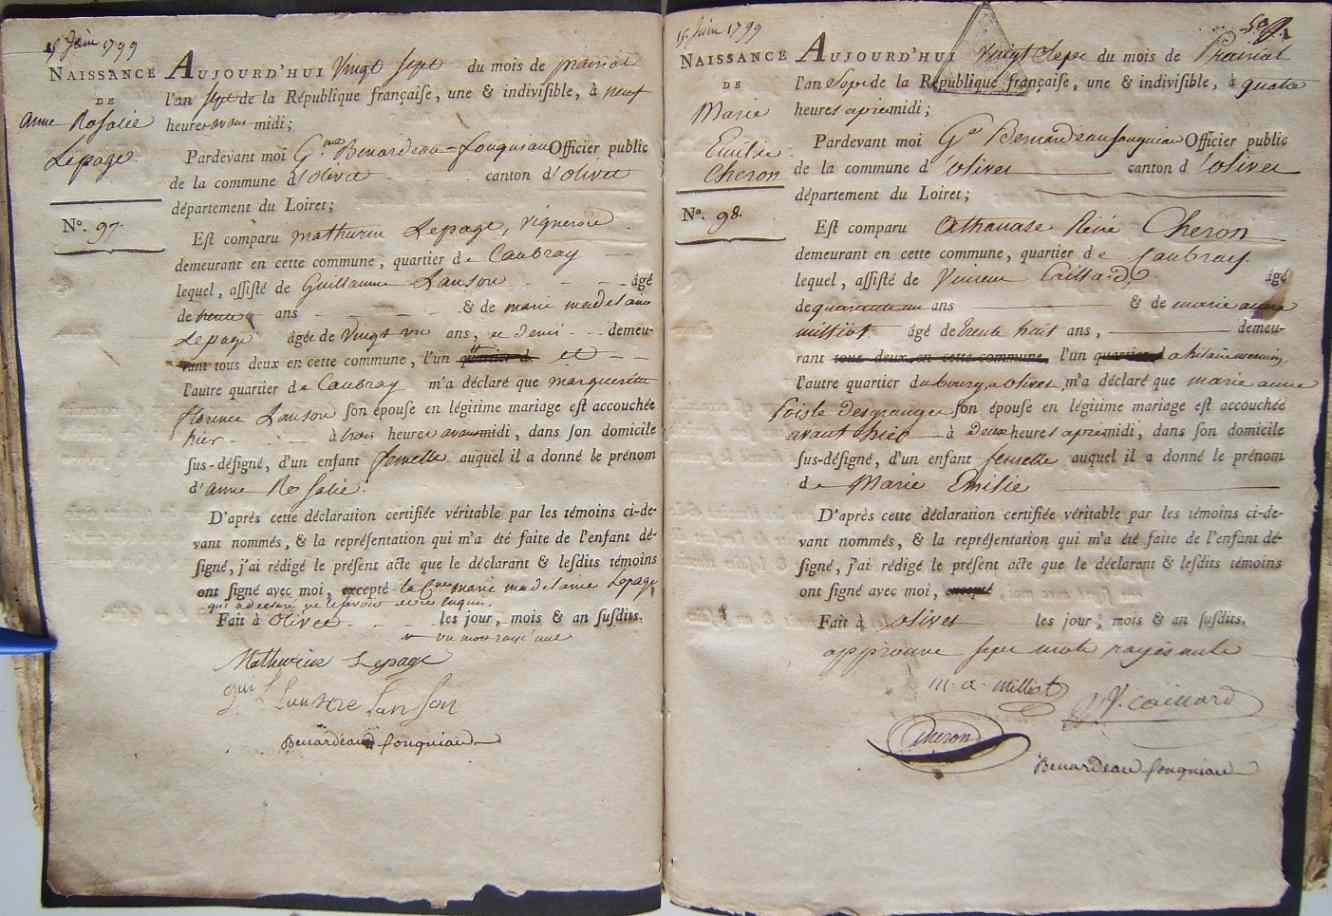 15 Juin 1799
NAISSANCE
DE
Anne Rosalie
Lepage
Nº. 97.
AUJOURD'HUI Vingt Sept du mois de prairial
l'an Sept de la République françaiſe, une & indiviſible, à neuf
heures avant midi;
Pardevant moi Benardeau-fougneau Officier public
de la commune d'olivet canton d'olivet
département du Loiret;
Eſt comparu Mathurin Lepage, Vigneron
demeurant en cette commune, quartier de Caubray
lequel, aſſiſté de Guillaume Lanson âgé
de trente ans & de marie madelaine
Lepage âgée de Vingt un ans, et demi demeu-
rant tous deux en cette commune, l'un quartier d et
l'autre quartier de Caubray m'a déclaré que marguerite
florence Lanson ſon épouſe en légitime mariage eſt accouchée
hier à trois heures avant midi, dans ſon domicile
ſus-déſigné, d'un enfant femelle auquel il a donné le prénom
d'anne Rosalie.
D'après cette déclaration certifiée véritable par les témoins ci-de-
vant nommés, & la repréſentation qui m'a été faite de l'enfant dé-
ſigné, j'ai rédigé le préſent acte que le déclarant & leſdits témoins
ont ſigné avec moi, excepté la marie madelaine Lepage
qui a declaré ne le savoir
Fait à Olivet les jour, mois & an ſuſdits.
un mot rayé nul
Mathurin Lepage
Lanson
Benardeau fougneau
15 Juin 1799
NAISSANCE
DE
Marie
Emilie
Cheron
Nº. 98.
AUJOURD'HUI Vingt Sept du mois de Prairial
l'an Sept de la République françaiſe, une & indiviſible, à quatre
heures apremidi;
Pardevant moi Benardeau fougneau Officier public
de la commune d'olivet canton d'olivet
département du Loiret;
Eſt comparu Athanase René Cheron
demeurant en cette commune, quartier de Caubray
lequel, aſſiſté de Caillard âgé
de quarante un ans & de marie anne
milliot âgé de trente huit ans, demeu-
rant tous deux en cette commune, l'un quartier d
l'autre quartier du bourg d'olivet m'a déclaré que marie anne
Desgranges ſon épouſe en légitime mariage eſt accouchée
avant hier à Deux heures apremidi, dans ſon domicile
ſus-déſigné, d'un enfant femelle auquel il a donné le prénom
de Marie Emilie
D'après cette déclaration certifiée véritable par les témoins ci-de-
vant nommés, & la repréſentation qui m'a été faite de l'enfant dé-
ſigné, j'ai rédigé le préſent acte que le déclarant & leſdits témoins
ont ſigné avec moi, excepté
Fait à olivet les jour, mois & an ſuſdits.
approuve sept mots rayés nuls
m. a. millot
caillard
Cheron
Benardeau fougneau